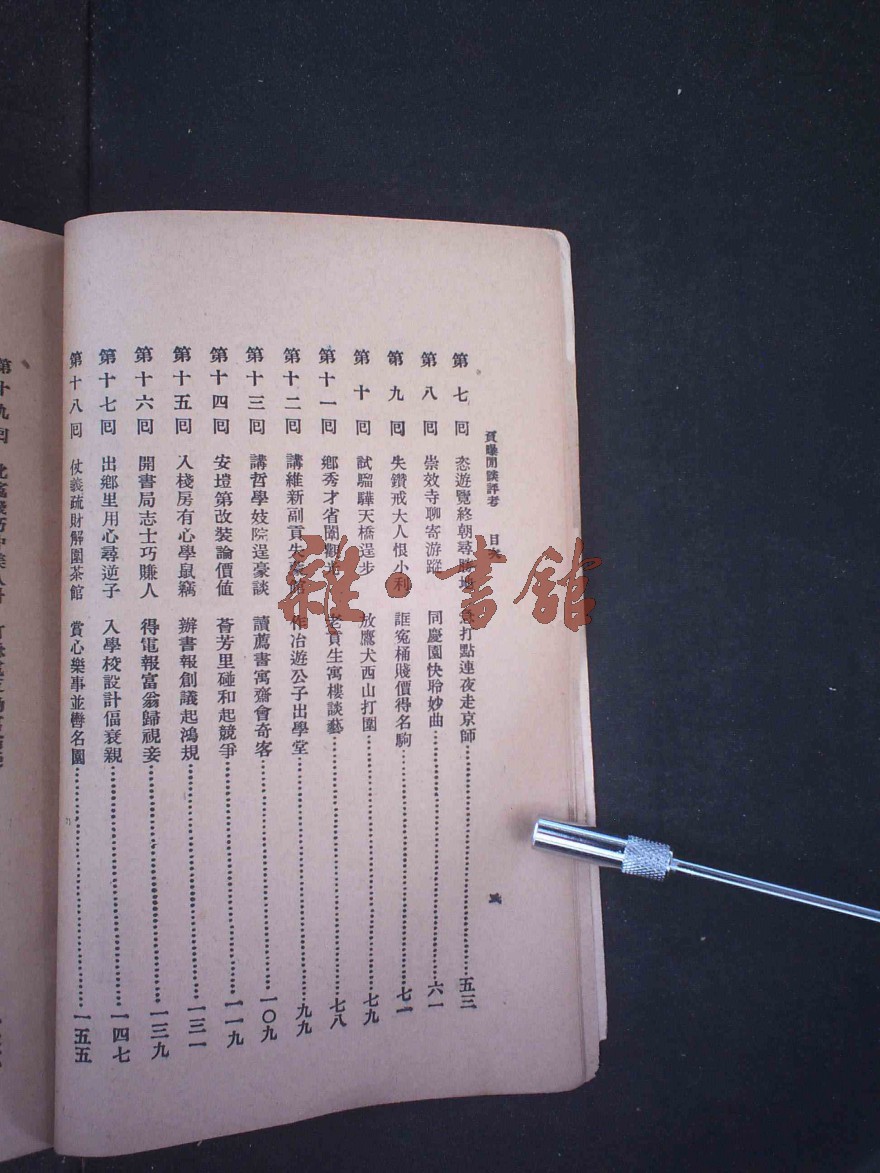 負曝閒談評考 目次
第七回 恣遊覽終朝尋勝地 急打點連夜走京師 五三
第八回 崇效寺聊寄游蹤 同慶園快聆妙曲 六一
第九回 失鑽戒大人恨小利 誆冤桶賤價得名駒 七一
第十回 試騮驊天橋逞步 放鷹犬西山打圍 七九
第十一回 鄉秀才省闈觀光 老貢生寓樓談藝 七八
第十二回 講維新副貢失蒙館 作冶遊公子出學堂 九九
第十三回 講哲學妓院逞豪談 讀薦書寓齋會奇客 一〇九
第十四回 安塏第改裝論價值 薈芳里碰和起競爭 一一九
第十五回 入棧房有心學鼠竊 辦書報創議起鴻規 一三一
第十六回 開書局志士巧賺人 得電報富翁歸視妾 一三九
第十七回 出鄉里用心尋逆子 入學校設計偪衰親 一四七
第十八回 仗義疏財解圍茶館 賞心樂事並轡名園 一五五
第十九回
雜·書館